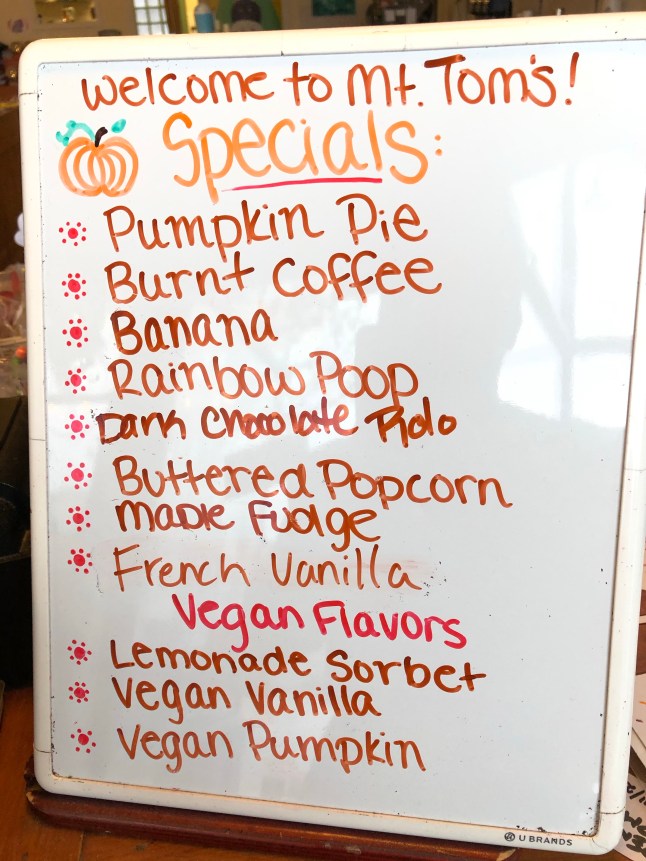 Welcome to Mt. Tom's!
Specials:
Pumpkin Pie
Burnt Coffee
Banana
Rainbow Poop
Dark Chocolate
Buttered Popcorn
Maple Fudge
French Vanilla
Vegan Flavors
Lemonade Sorbet
Vegan Vanilla
Vegan Pumpkin
U BRANDS